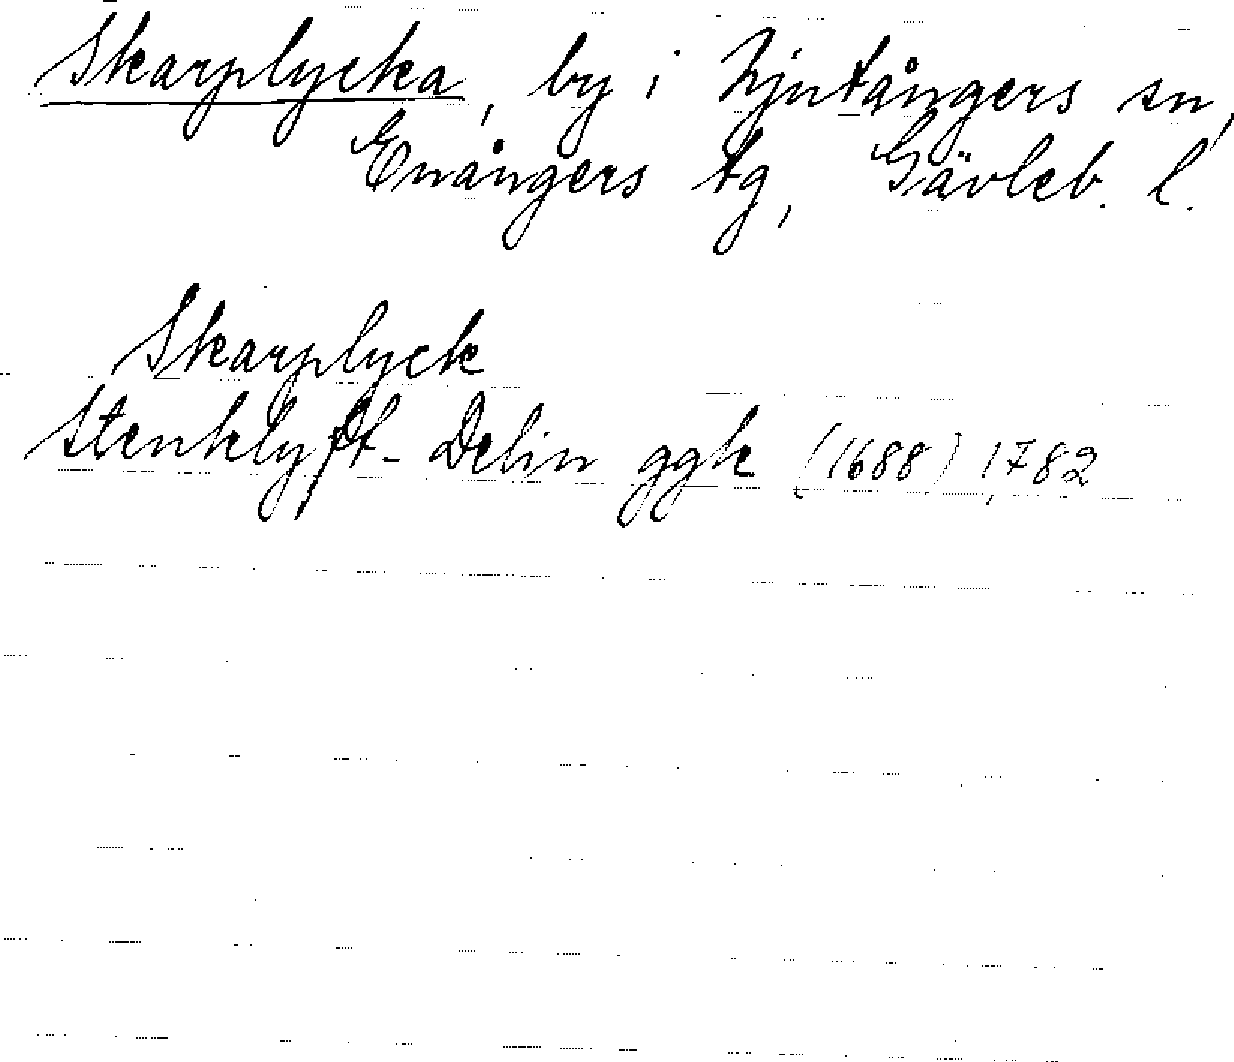 Skarplycka, by i Njutångers sn,
Enångers tg, Gävleb. l.
Skarplyck
Stenklyft- Delin ggk (1688) 1782